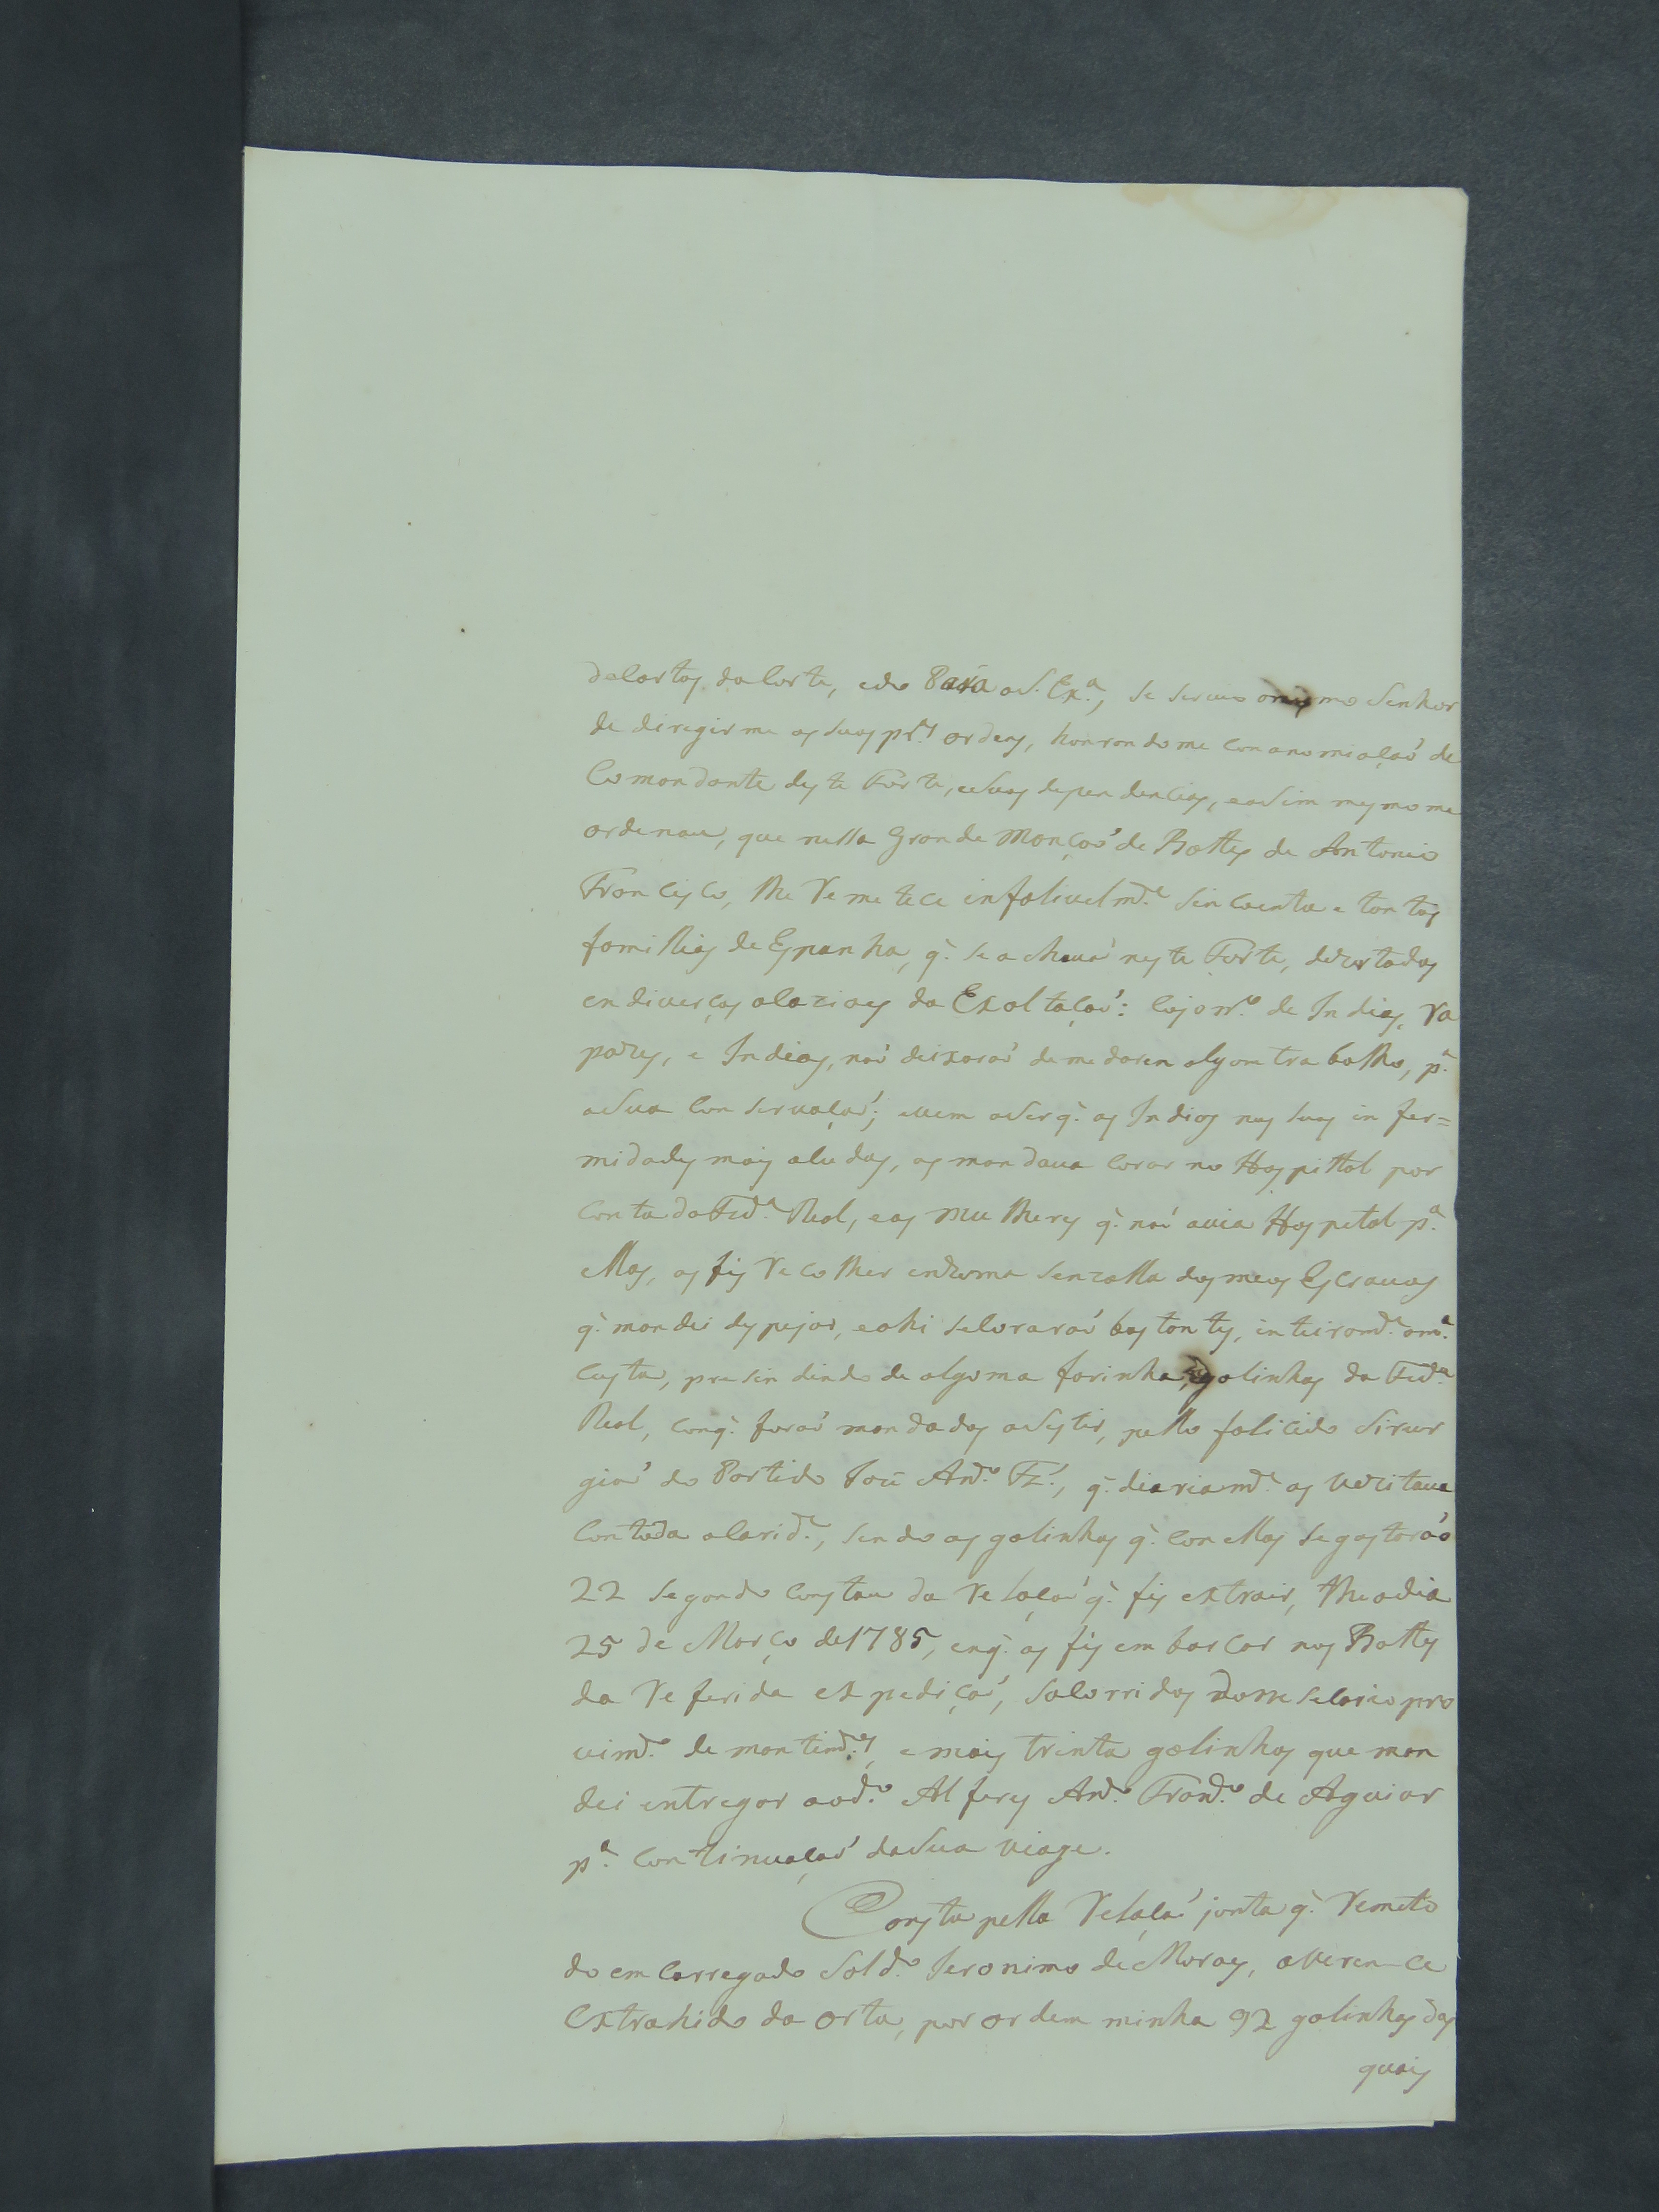 de Cartas da Corte, e do Pará a S. Ex.ª, se servio o mesmo Senhor
de diregirme as suas pr.ᵃˢ ordens, honrandome com a nomiaçaõ de
Comandante deste Forte, e suas dependencias, e asim mesmo me
ordenava, que nella Grande Monçaõ de Bottes de Antonio
Francisco, lhe Remetece infalivelm.ᵉ sincoenta e tantas
famillias de Espanha, q̃ se achavaõ neste Forte, dezertadas
en diverças ocazioes da Exoltaçaõ: cujo nr.º de Indios, Ra
pazes, e Indias, naõ deixaraõ de me darem algom trabalho, p.ª
a sua Conservaçaõ; e vem a ser q̃ os Indios nas suas infer=
midades mais aludas, os mandava Corar no Hospittal por
Conta da Fzd.ª Real, e as Mulheres q̃ naõ avia Hospetal p.ª
ellas, as fis Recolher en huma Senzalla dos meos Escravos
q̃ mandei despejar, e ahi se Coraraõ bastantes, inteiram.ᵉ a m.ª
custa, presindindo de algoma farinha, e galinhas da Fzd.ª
Real, con q̃ foraõ mandadas asestir, pello falicido Sirur
giaõ do Partido Joze Ant.º Fz., q̃ diariam.ᵉ os vezitava
Con toda a Carid.ᵉ, sendo as galinhas q̃ con ellas se gastaraõ
22 segondo Consta da Relaçaõ q̃ fis extrair, the o dia
25 de Março de 1785, en q̃ os fis embarcar nos Bottes
da Referida expediçaõ, socorridos do necesario pro
vim.º de mantim.ᵗᵒˢ, e mais trinta galinhas que man
dei entregar ao d.º Alferes Ant.º Fran.ᶜᵒ de Aguiar
p.ª Continuaçaõ da sua viage.
Consta pella Relaçaõ jonta q̃ Remeto
do emcarregado Sold.º Jeronimo de Moraes, averem-ce
extrahido da Orta, por ordem minha 92 galinhas das
quais